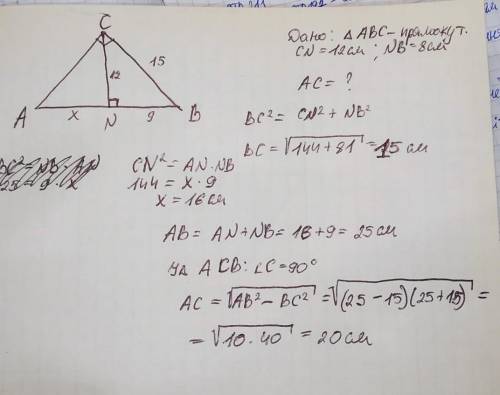 C
12
15
A
x
N
9
B
Дано: △ABC - прямокут.
CN = 12 см ; NB = 8 см
AC = ?
BC² = CN² + NB²
BC = √144 + 81 = 15 см
CN² = AN · NB
144 = x · 9
x = 16 см
AB = AN + NB = 16 + 9 = 25 см
Уд ACB: ∠C = 90°
AC = √AB² - BC² = √(25 - 15)(25 + 15) =
= √10 · 40 = 20 см